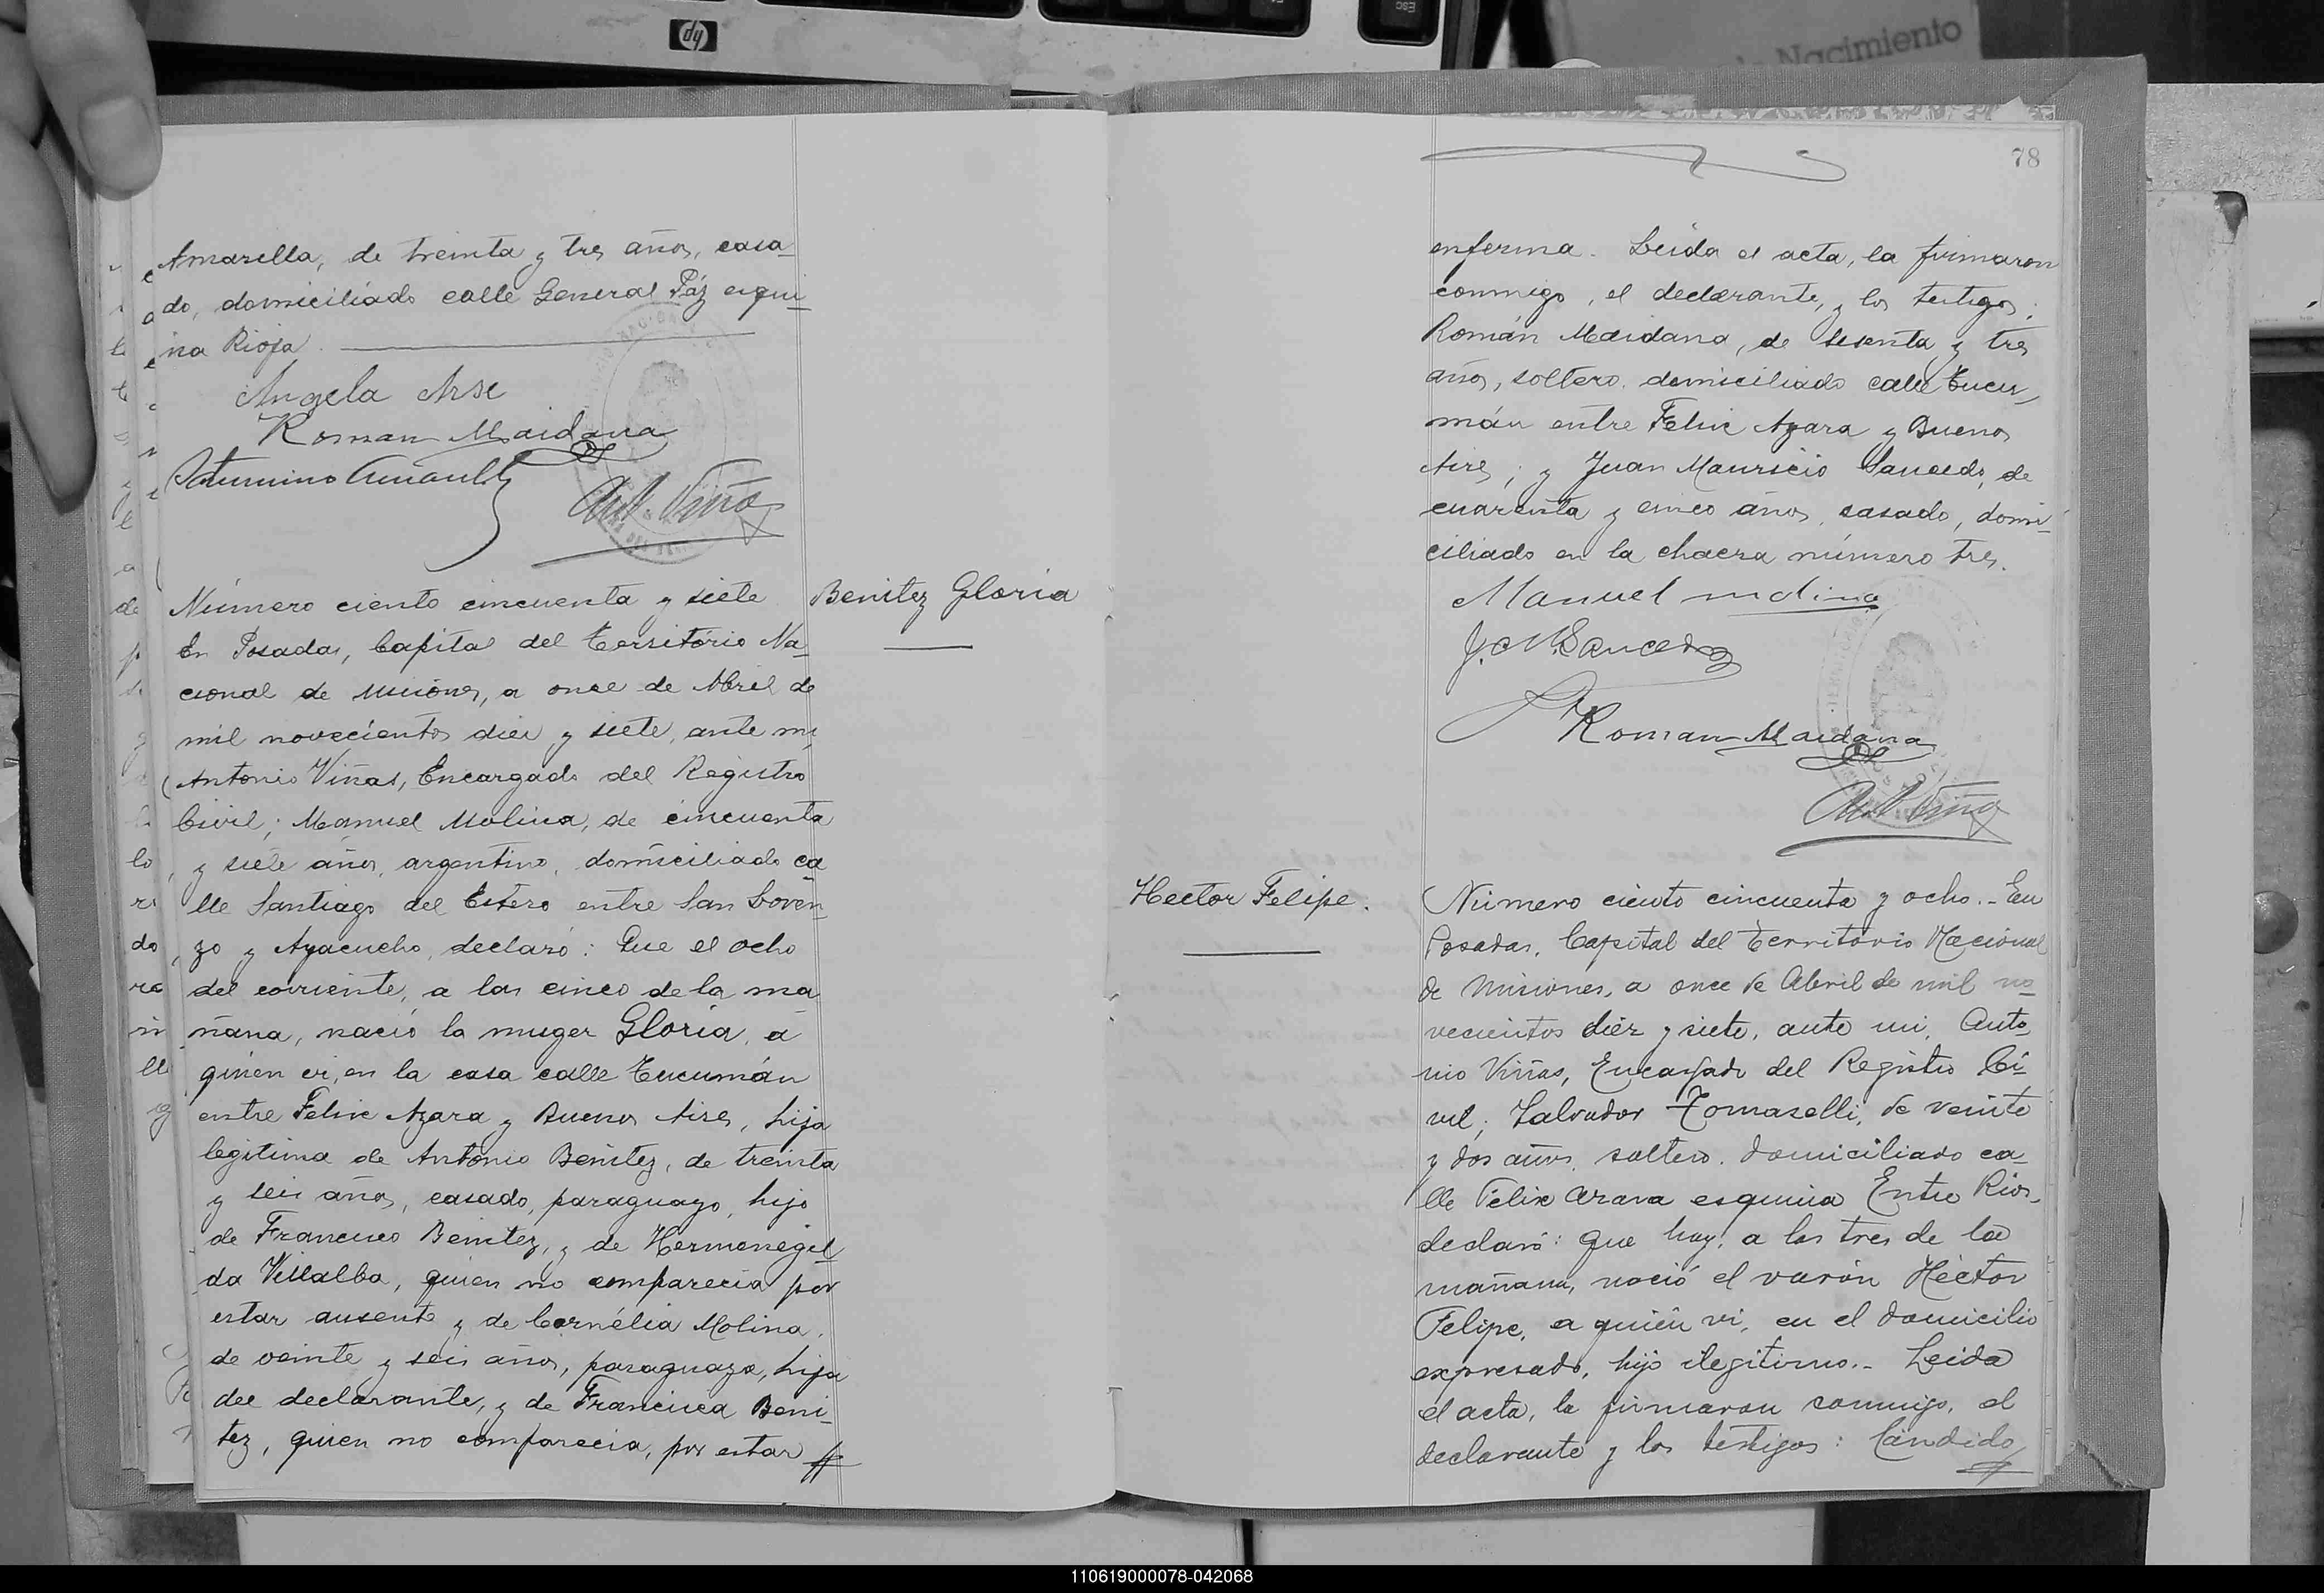 hp
ESC
Nacimiento
Amarilla, de treinta y tres años, casa-
do, domiciliado calle General Páz esqui-
na Rioja.
Angela Arse
Roman Maidana
Saturnino
Ant. Viñas
Número ciento cincuenta y siete
En Posadas, Capital del Territorio Na-
cional de Misiones, a once de Abril de
mil novecientos diez y siete, ante mi,
Antonio Viñas, Encargado del Registro
Civil; Manuel Molina, de cincuenta
y siete años, argentino, domiciliado ca-
lle Santiago del Estero entre San Loren-
zo y Ayacucho, declaró: Que el ocho
del corriente, a las cinco de la ma-
ñana, nació la muger Gloria, á
quien vi, en la casa calle Tucumán
entre Felix Azara y Buenos Aires, hija
legitima de Antonio Benitez, de treinta
y seis años, casado, paraguayo, hijo
de Francisco Benitez, y de Hermenegil-
da Villalba, quien no comparecia por
estar ausente y de Cornélia Molina,
de veinte y seis años, paraguaya, hija
del declarante, y de Francisca Beni-
tez, quien no comparecia, por estar
Benitez Gloria
78
enferma. Leida el acta, la firmaron
conmigo, el declarante, y los testigos:
Román Maidana, de sesenta y tres
años, soltero, domiciliado calle Tucu-
mán entre Felix Azara y Buenos
Aires; y Juan Mauricio Saucedo, de
cuarenta y cinco años, casado, domi-
ciliado en la chacra número tres.
Manuel molina
J. M. Saucedo
Roman Maidana
Ant. Viñas
Hector Felipe.
Número ciento cincuenta y ocho.- En
Posadas, Capital del Territorio Nacional
de Misiones, a once de Abril de mil no-
vecientos diéz y siete, ante mi, Anto-
nio Viñas, Encargado del Registro Ci-
vil; Salvador Tomaselli, de veinte
y dos años, soltero, domiciliado ca-
lle Felix Azara esquina Entre Rios,
declaró: que hoy, a las tres de la
mañana, nació el varón Héctor
Felipe, a quién vi, en el domicilio
expresado, hijo ilegitimo.- Leida
el acta, la firmaron conmigo, el
declarante y los testigos: Cándido
110619000078-042068